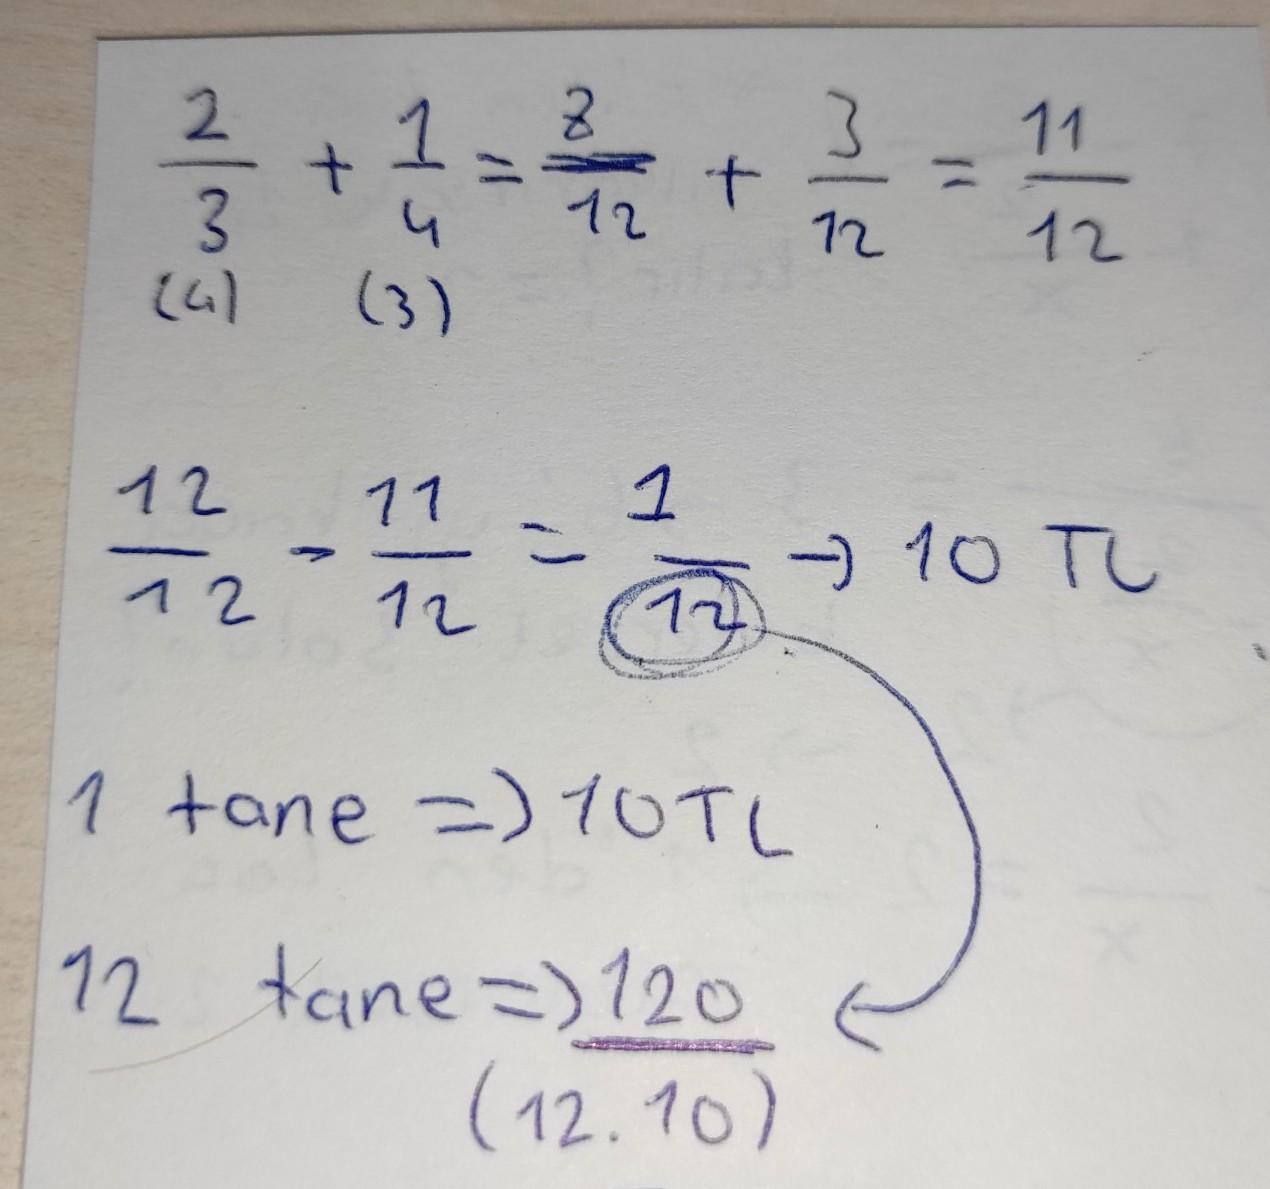 2/3 + 1/4 = 8/12 + 3/12 = 11/12
(4) (3)
12/12 - 11/12 = 1/12 → 10 TL
1 tane => 10 TL
12 tane => 120
(12.10)